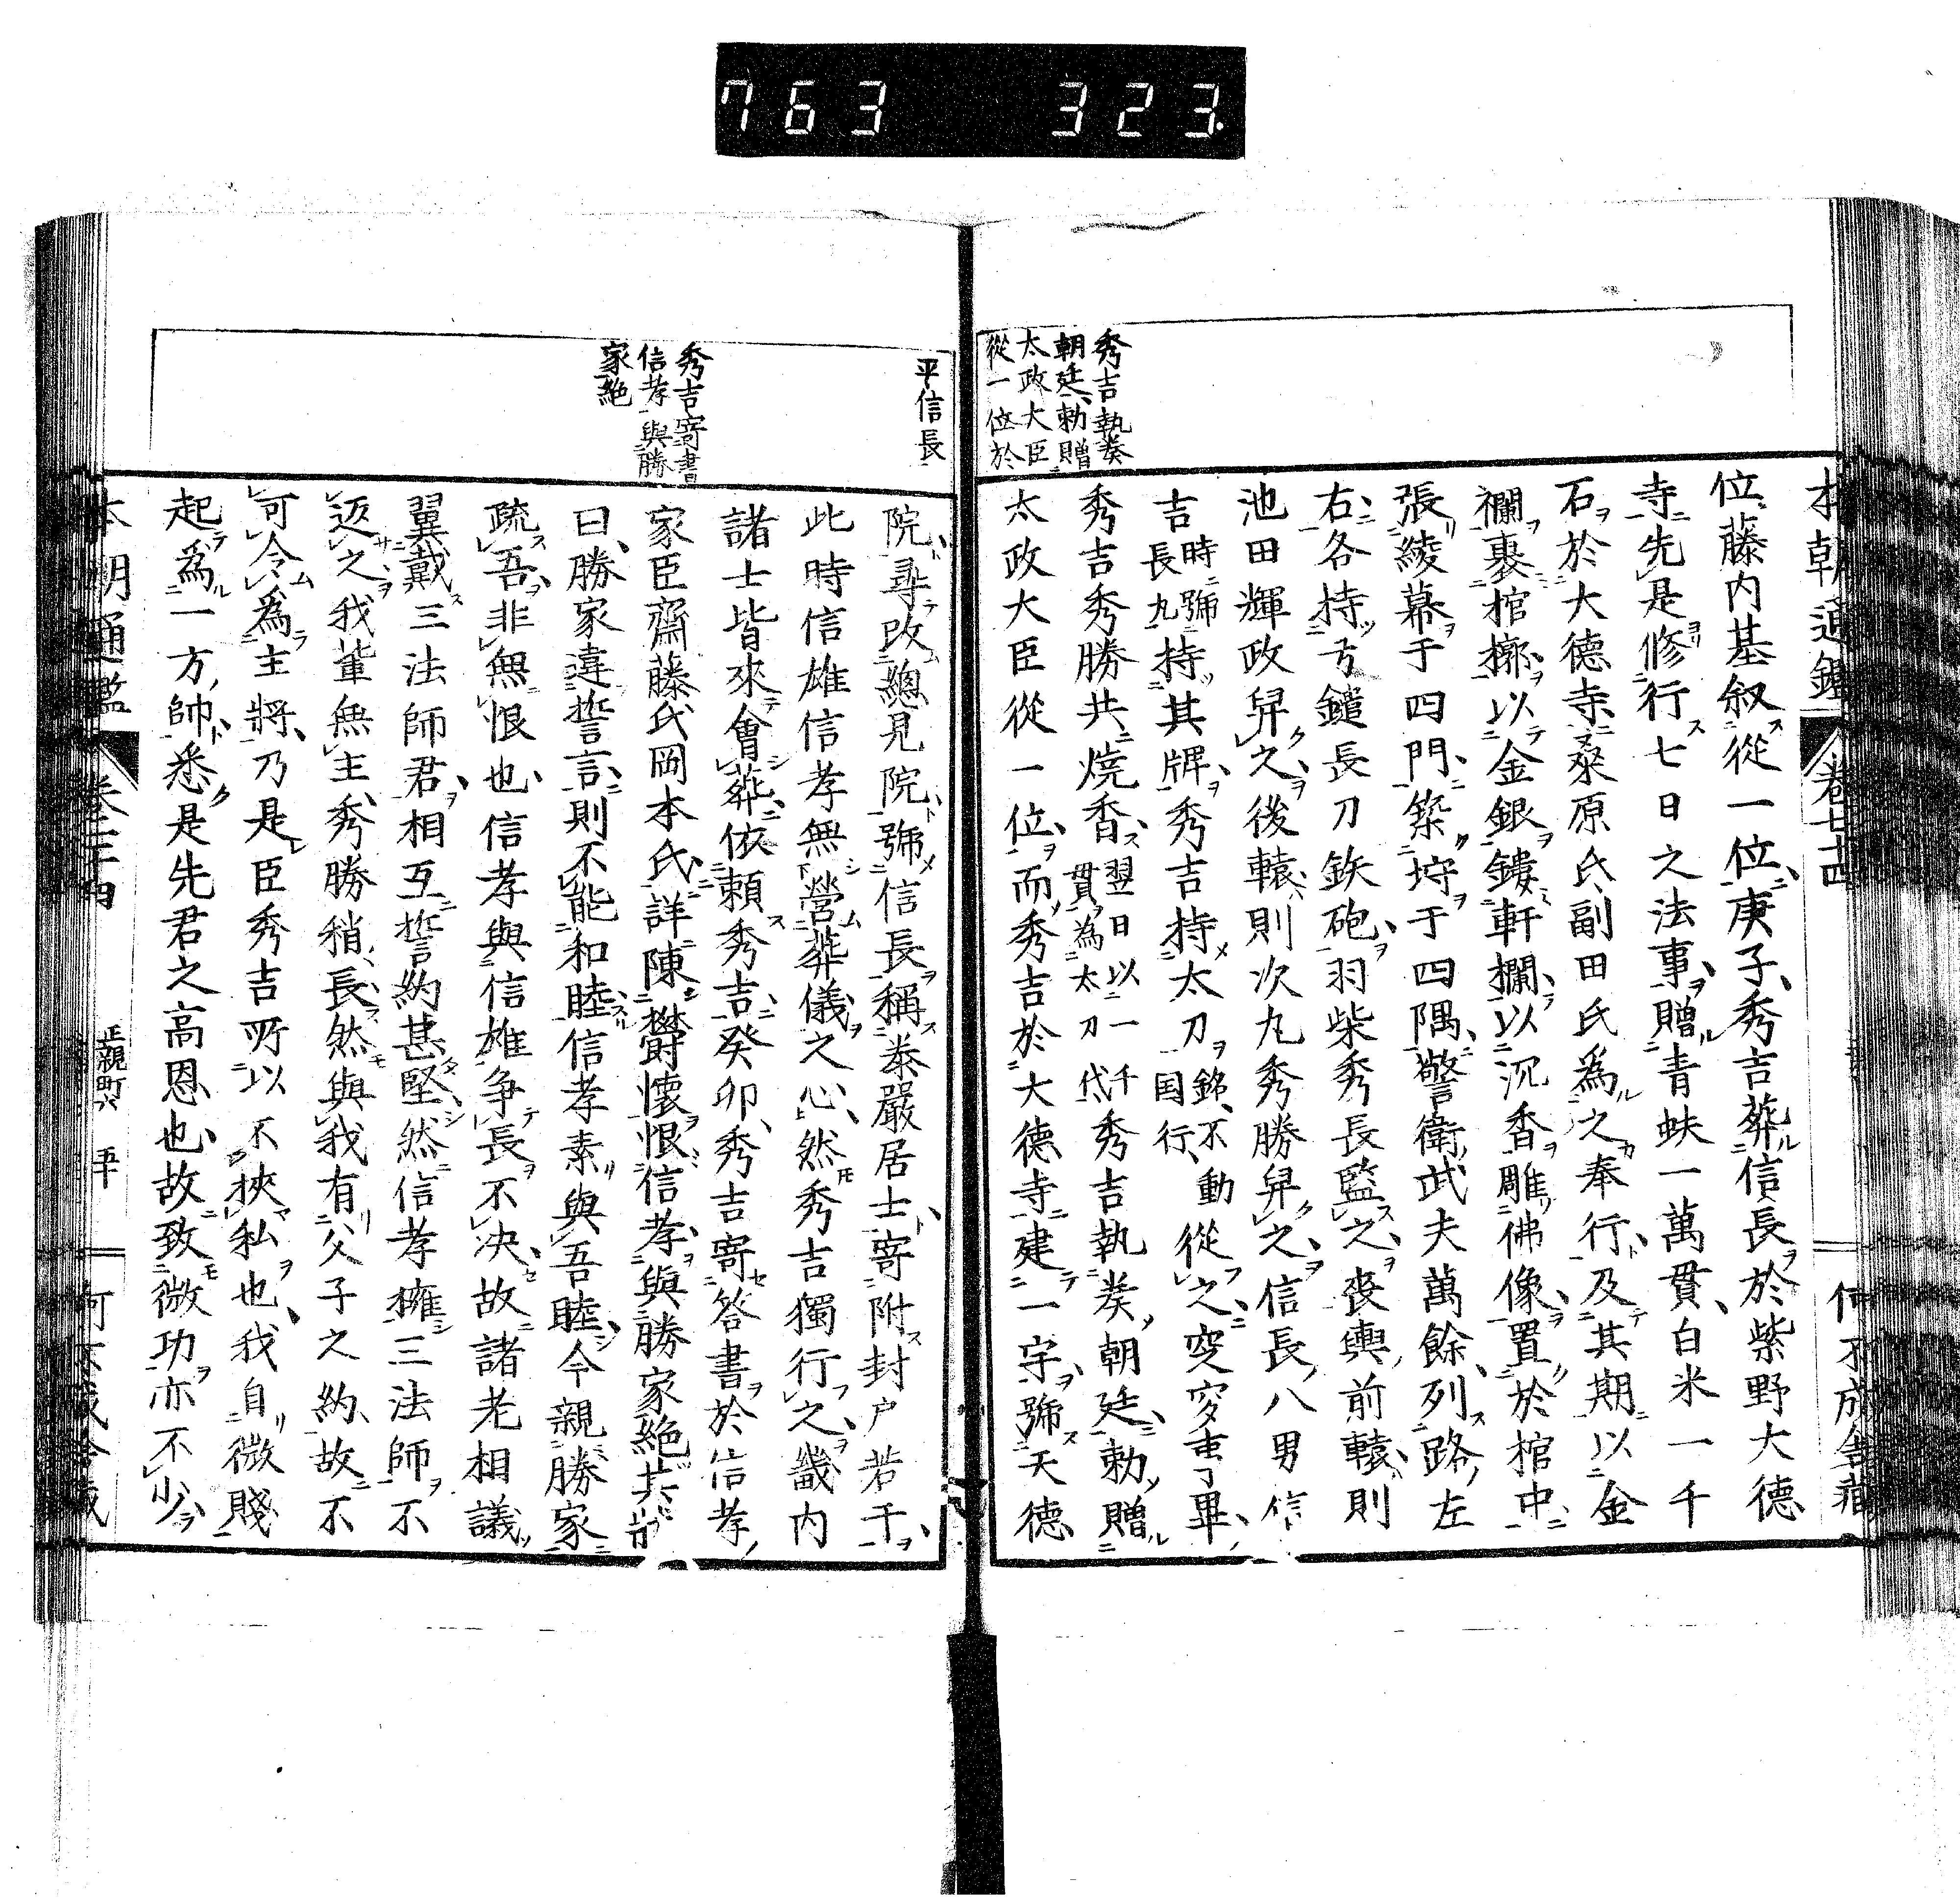 763 323
秀吉執奏
朝廷勅贈
太政大臣
從一位於
平信長
秀吉寄書
信孝與勝
家絶
本朝通鑑 卷七十四
位藤内基叙從一位庚子秀吉葬信長於紫野大德
寺先是修行七日之法事贈青蚨一萬貫白米一千
石於大德寺桑原氏副田氏爲之奉行及其期以金
襴裹棺槨以金銀鏤軒欄以沉香雕佛像置於棺中
張綾幕于四門築垨于四隅警衛武夫萬餘列路左
右各持弓鑓長刀鉃砲羽柴秀長監之喪輿前轅則
池田輝政舁之後轅則次丸秀勝舁之信長八男信
吉時號長丸持其牌秀吉持太刀銘不動国行從之窆穸事畢
秀吉秀勝共燒香翌日以一千貫為太刀代秀吉執奏朝廷勅贈
太政大臣從一位而秀吉於大德寺建一宇號天德
院尋改總見院號信長稱泰嚴居士寄附封户若干
此時信雄信孝無營葬儀之心然秀吉獨行之畿内
諸士皆來會葬依頼秀吉癸卯秀吉寄答書於信孝
家臣齋藤氏岡本氏詳陳欝懷恨信孝與勝家絶其
曰勝家違誓言則不能和睦信孝素與吾睦今親勝家
疏吾非無恨也信孝與信雄争長不决故諸老相議
翼戴三法師君相互誓約甚堅然信孝擁三法師不
返之我輩無主秀勝稍長然與我有父子之約故不
可令爲主將乃是臣秀吉所以不挾私也我自微賤
起爲一方帥悉是先君之高恩也故致微功亦不少
本朝通鑑 卷七十四 正親町六 五十